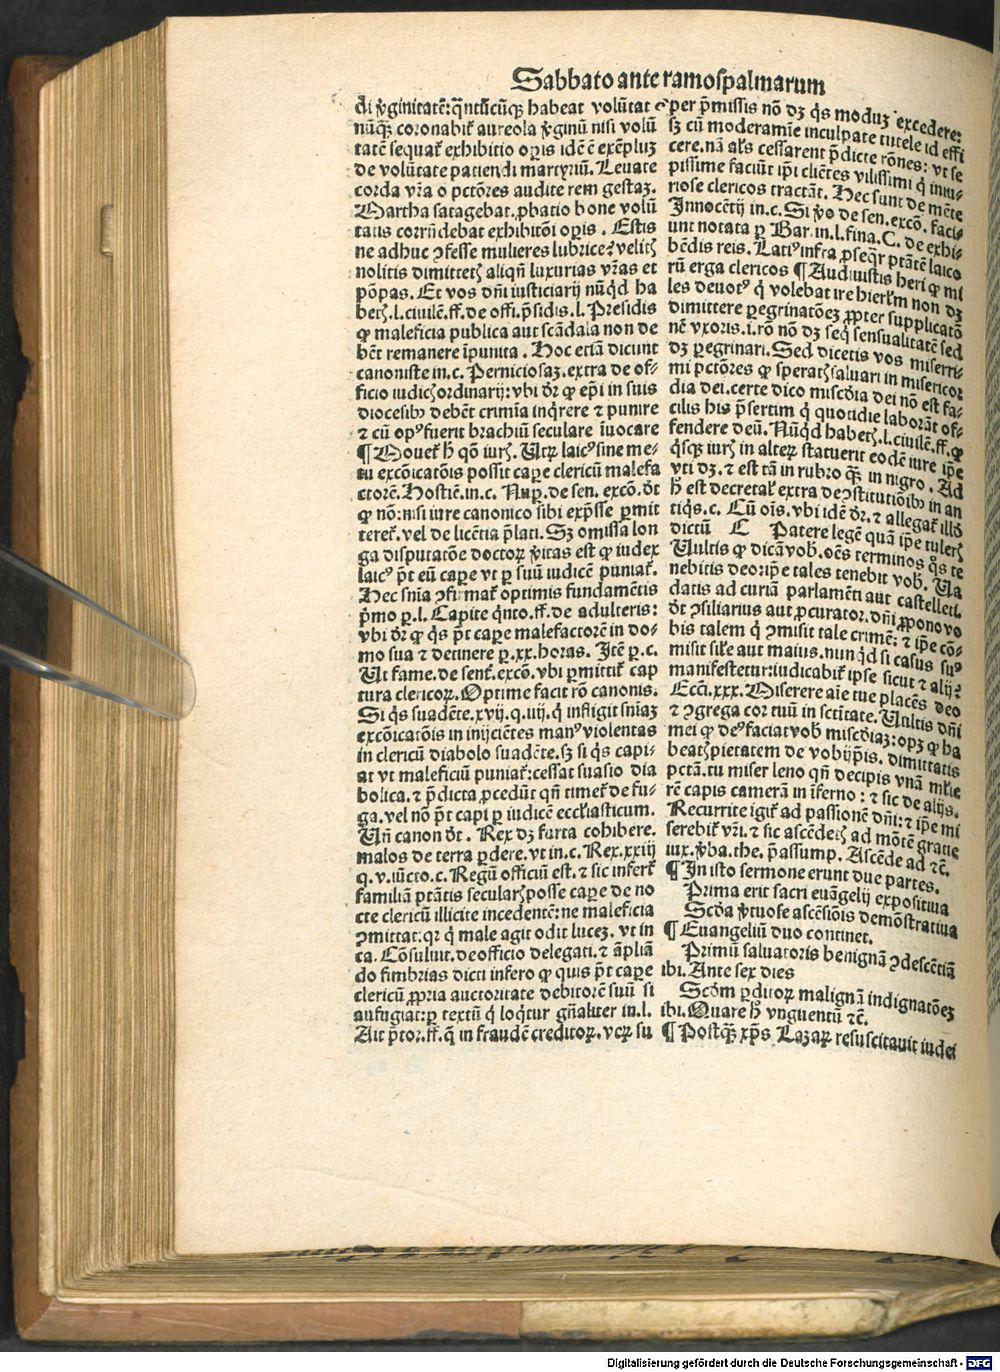 Sabbato ante ramospalmarum
di ꝟginitatē: q̄ntūcūqꝫ habeat volūtatē
nūqꝫ coronabiť aureola ꝟginū nisi volū
tatē sequať exhibitio oꝑis idē ē exēpluꝫ
de volūtate patiendi martyriū. Leuate
corda vr̄a o pctōres audite rem gestaꝫ.
Martha satagebat. ꝓbatio bone volū
tatis corrūdebat exhibitōi oꝑis. Estis
ne adhuc ꝯfesse mulieres lubrice? velitꝭ
nolitis dimittetꝭ aliqñ luxurias vr̄as et
pōpas. Et vos dñi iusticiarij nūq̇d ha
betꝭ. l. ciuilē. ff. de offi. p̄sidis. l. Presidis
ꝙ maleficia publica aut scādala non de
bēt remanere īpunita. Hoc etiā dicunt
canoniste in. c. Perniciosaꝫ. extra de of-
ficio iudicꝭ ordinarij: vbi dř ꝙ ep̄i in suis
diocesibꝰ debēt crimīa inq̇rere ⁊ punire
⁊ cū opꝰ fuerit brachiū seculare īuocare
¶ Moueť h̄ qō iurꝭ. Utꝝ laicꝰ sine me-
tu excōicatōis possit caꝑe clericū malefa
ctorē. Hostiē. in. c. Nuꝑ. de sen. excō. dt̄
ꝙ nō: nisi iure canonico sibi exp̄sse ꝑmit
tereť. vel de licētia p̄lati. Sꝫ omissa lon
ga disputatōe doctoꝝ ꝟitas est ꝙ iudex
laicꝰ p̄t eū caꝑe vt ꝑ suū iudicē puniať.
Hec snīa ꝯfirmať optimis fundamētis
p̄mo ꝑ. l. Capite q̇nto. ff. de adulteris:
vbi dř ꝙ q̇s p̄t caꝑe malefactorē in do-
mo sua ⁊ detinere ꝑ. xx. horas. Itē ꝑ. c.
Ut fame. de sent̄. excō. vbi ꝑmittiť cap
tura clericoꝝ. Optime facit rō canonis.
Si q̇s suadēte. xvij. q. iiij. q̇ infligit snīaꝫ
excōicatōis in inijciētes manꝰ violentas
in clericū diabolo suadēte. sꝫ si q̇s capi-
at vt maleficiū puniať: cessat suasio dia
bolica. ⁊ p̄dicta ꝓcedūt qñ timeť de fu-
ga. vel nō p̄t capi ꝑ iudicē eccl̄iasticum.
Uñ canon dt̄. Rex dꝫ furta cohibere.
malos de terra ꝑdere. vt in. c. Rex. xxiij
q. v. iūcto. c. Regū officiū est. ⁊ sic inferť
familiā ptātis secularꝭ posse caꝑe de no
cte clericū illicite incedentē: ne maleficia
ꝯmittat: qꝛ q̇ male agit odit luceꝫ. vt in
ca. Cōsuluit. de officio delegati. ⁊ āpliā
do fimbrias dicti infero ꝙ quis p̄t caꝑe
clericū ꝓpria auctoritate debitorē suū si
aufugiat: ꝑ textū q̇ loq̇tur gn̄aliter in. l.
Ait p̄tor. ff. q̄ in fraudē creditoꝝ. vtꝝ su
ꝑ p̄missis nō dꝫ q̇s moduꝫ excedere:
sꝫ cū moderamīe inculpate tutele id effi
cere. nā al̄s cessarent p̄dicte rōnes: vt se
pissime faciūt ip̄i cliētes vilissimi q̇ iniu-
riose clericos tractāt. Hec sunt de mēte
Innocētij in. c. Si ꝟo de sen. excō. faci-
unt notata ꝑ Bar. in. l. fina. C. de exhi-
bēdis reis. Latiꝰ infra ꝓseq̇r ptātē laico
rū erga clericos ¶ Audiuistis heri ꝙ mi
les deuotꝰ q̇ volebat ire hierl̄m non dꝫ
dimittere ꝑegrinatōeꝫ ꝓpter supplicatō
nē vxoris. i. rō nō dꝫ seq̇ sensualitatē sed
dꝫ ꝑegrinari. Sed dicetis vos miserri-
mi pctōres ꝙ speratꝭ saluari in misericor
dia dei. certe dico miscd̄ia dei nō est fa-
cilis his p̄sertim q̇ quotidie laborāt of-
fendere deū. Nūq̇d habetꝭ. l. ciuilē. ff. ꝙ
q̇sqꝫ iurꝭ in alteꝝ statuerit eodē iure ip̄e
vti dꝫ. ⁊ est tā in rubro qꝫ in nigro. Ad
h̄ est decretaľ extra de ꝯstitutiōibꝰ in an
tiq̇s. c. Cū oīs. vbi idē dř. ⁊ allegať illd̄
dictū C Patere legē quā ip̄e tulerꝭ
Uultis ꝙ dicā vob̄. oēs terminos q̇s te
nebitis deo: ip̄e tales tenebit vob̄. Ua
datis ad curiā parlamēti aut castelleti.
dt̄ ꝯsiliarius aut ꝓcurator. dñi ꝓpono vo
bis talem q̇ ꝯmisit tale crimē: ⁊ ip̄e cō-
misit sil̄e aut maius. nunq̇d si casus suꝰ
manifestetur: iudicabiť ipse sicut ⁊ alij?
Ecci. xxx. Miserere aīe tue placēs deo
⁊ ꝯgrega cor tuū in sctītate. Uultis dñi
mei ꝙ deꝰ faciat vob̄ miscd̄iaꝫ: opꝫ ꝙ ha
beatꝭ pietatem de vobijp̄is. dimittatis
pctā. tu miser leno qñ decipis vnā ml̄ie
rē capis camerā in īferno: ⁊ sic de alijs.
Recurrite igiť ad passionē dñi: ⁊ ip̄e mi
serebiť vr̄i. ⁊ sic ascēdetꝭ ad mōtē gratie
iux. ꝟba. the. p̄assump. Ascēde ad ⁊c̄.
¶ In isto sermone erunt due partes.
Prima erit sacri euāgelij expositiua
Scd̄a ꝟtuose ascēsiōis demōstratiua
¶ Euangeliū duo continet.
Primū saluatoris benignā ꝯdescētiā
ibi. Ante sex dies
Scd̄m ꝑditoꝝ malignā indignatōeꝫ
ibi. Quare h̄ vnguentū ⁊c̄.
¶ Postqꝫ xp̄s Lazaꝝ resuscitauit iudei
Digitalisierung gefördert durch die Deutsche Forschungsgemeinschaft - DFG